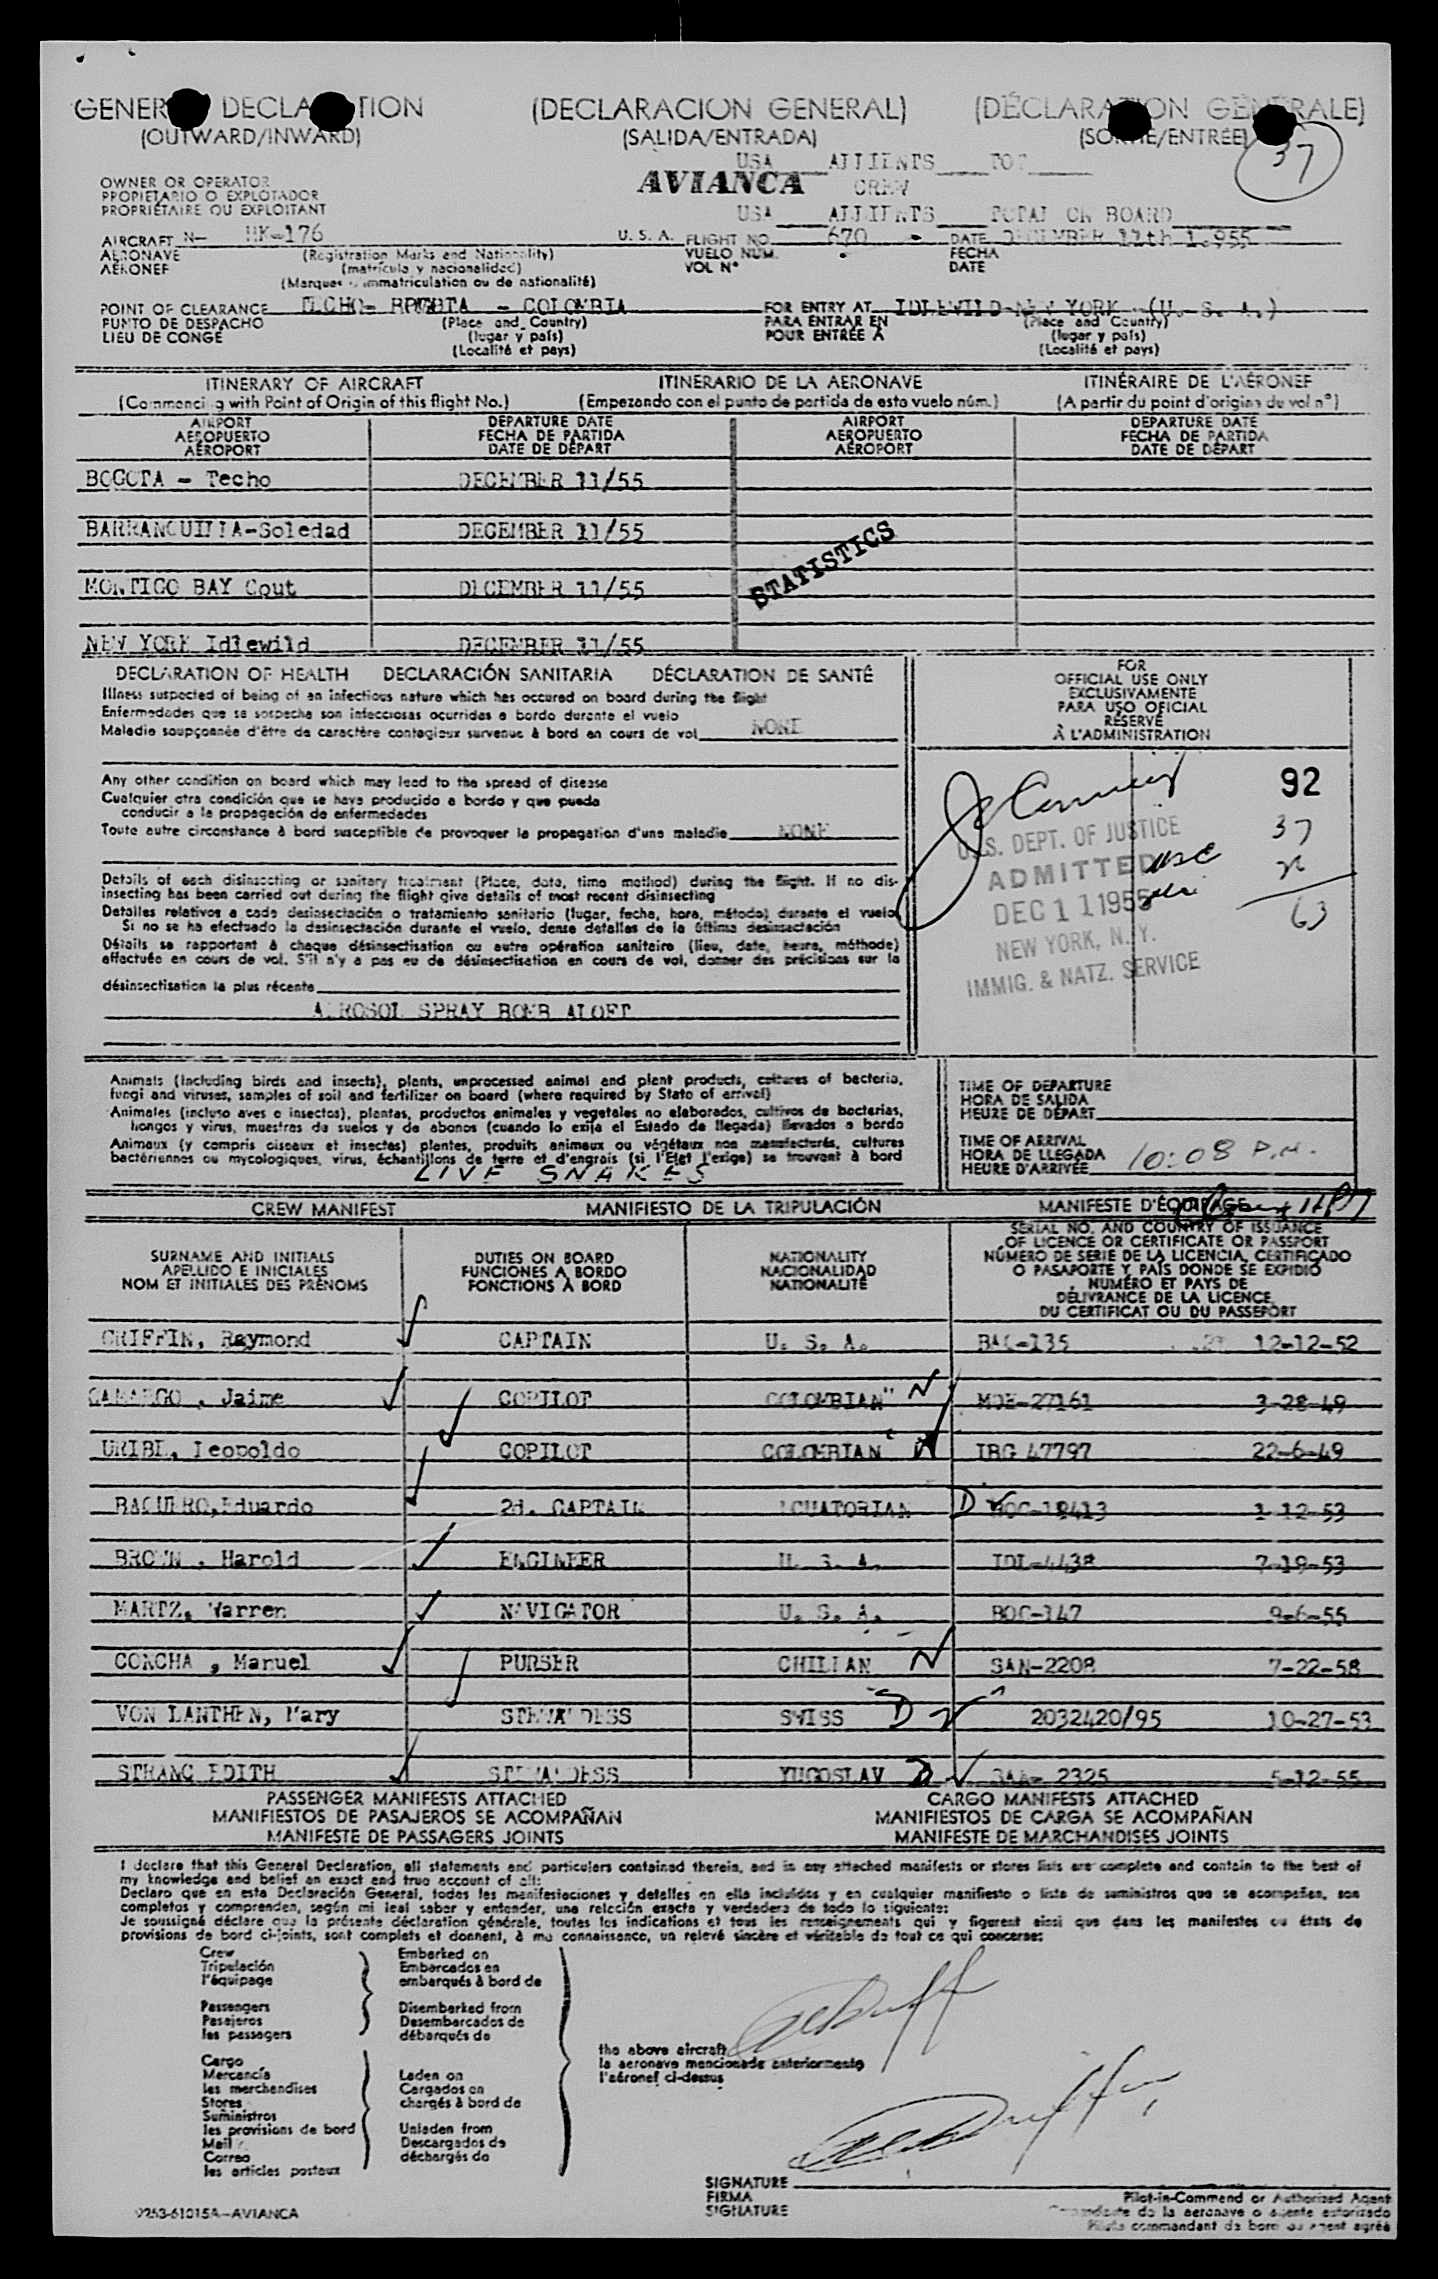 GENERAL DECLARATION (DECLARACION GENERAL) (DÉCLARATION GÉNÉRALE)
(OUTWARD/INWARD) (SALIDA/ENTRADA) (SORTIE/ENTRÉE)
37
USA ALLIENTS TOT
OWNER OR OPERATOR AVIANCA CREW
PROPIETARIO O EXPLOTADOR
PROPRIÉTAIRE OU EXPLOITANT
USA ALLIENTS TOTAL ON BOARD
AIRCRAFT N- HK-176 U. S. A. FLIGHT NO. 670 - DATE DECEMBER 11th 1.955
AERONAVE (Registration Marks and Nationality) VUELO NUM. FECHA
AÉRONEF (matrícula y nacionalidad) VOL Nº DATE
(Marques d'immatriculation ou de nationalité)
POINT OF CLEARANCE TECHO- BOGOTA - COLOMBIA FOR ENTRY AT IDLEWILD-NEW YORK (U. S. A.)
PUNTO DE DESPACHO (Place and Country) PARA ENTRAR EN (Place and Country)
LIEU DE CONGÉ (lugar y país) POUR ENTRÉE À (lugar y país)
(Localité et pays) (Localité et pays)
ITINERARY OF AIRCRAFT ITINERARIO DE LA AERONAVE ITINÉRAIRE DE L'AÉRONEF
(Commencing with Point of Origin of this flight No.) (Empezando con el punto de partida de esto vuelo núm.) (A partir du point d'origine du vol nº)
AIRPORT DEPARTURE DATE AIRPORT DEPARTURE DATE
AEROPUERTO FECHA DE PARTIDA AEROPUERTO FECHA DE PARTIDA
AÉROPORT DATE DE DÉPART AÉROPORT DATE DE DÉPART
BOGOTA - Techo DECEMBER 11/55
BARRANQUILLA-Soledad DECEMBER 11/55
STATISTICS
MONTIGO BAY Cout DECEMBER 11/55
NEW YORK Idlewild DECEMBER 11/55
DECLARATION OF HEALTH DECLARACIÓN SANITARIA DÉCLARATION DE SANTÉ
Illness suspected of being of an infectious nature which has occured on board during the flight
Enfermedades que se sospecha son infecciosas ocurridas a bordo durante el vuelo
Maladie soupçonnée d'être de caractère contagieux survenue à bord en cours de vol NONE
Any other condition on board which may lead to the spread of disease
Cualquier otra condición que se haya producido a bordo y que pueda
conducir a la propagación de enfermedades
Toute autre circonstance à bord susceptible de provoquer la propagation d'une maladie NONE
Details of each disinsecting or sanitary treatment (Place, date, time method) during the flight. If no dis-
insecting has been carried out during the flight give details of most recent disinsecting
Detalles relativos a cada desinsectación o tratamiento sanitario (lugar, fecha, hora, método) durante el vuelo.
Si no se ha efectuado la desinsectación durante el vuelo, dense detalles de la última desinsectación
Détails se rapportant à chaque désinsectisation ou autre opération sanitaire (lieu, date, heure, méthode)
effectuée en cours de vol. S'il n'y a pas eu de désinsectisation en cours de vol, donner des précisions sur la
désinsectisation la plus récente
AEROSOL SPRAY BOMB ALOFT
FOR
OFFICIAL USE ONLY
EXCLUSIVAMENTE
PARA USO OFICIAL
RÉSERVÉ
À L'ADMINISTRATION
92
37
26
63
U.S. DEPT. OF JUSTICE
ADMITTED
DEC 11 1955
NEW YORK, N.Y.
IMMIG. & NATZ. SERVICE
Animals (including birds and insects), plants, unprocessed animal and plant products, cultures of bacteria,
fungi and viruses, samples of soil and fertilizer on board (where required by State of arrival)
Animales (incluso aves e insectos), plantas, productos animales y vegetales no elaborados, cultivos de bacterias,
hongos y virus, muestras de suelos y de abonos (cuando lo exija el Estado de llegada) llevados a bordo
Animaux (y compris oiseaux et insectes) plantes, produits animaux ou végétaux non manufacturés, cultures
bactériennes ou mycologiques, virus, échantillons de terre et d'engrais (si l'État l'exige) se trouvant à bord
LIVE SNAKES
TIME OF DEPARTURE
HORA DE SALIDA
HEURE DE DÉPART
TIME OF ARRIVAL
HORA DE LLEGADA 10:08 P.M.
HEURE D'ARRIVÉE
CREW MANIFEST MANIFIESTO DE LA TRIPULACIÓN MANIFESTE D'ÉQUIPAGE
SURNAME AND INITIALS DUTIES ON BOARD NATIONALITY
APELLIDO E INICIALES FUNCIONES A BORDO NACIONALIDAD
NOM ET INITIALES DES PRÉNOMS FONCTIONS À BORD NATIONALITÉ
SERIAL NO. AND COUNTRY OF ISSUANCE
OF LICENCE OR CERTIFICATE OR PASSPORT
NÚMERO DE SERIE DE LA LICENCIA, CERTIFICADO
O PASAPORTE Y PAÍS DONDE SE EXPIDIÓ
NUMÉRO ET PAYS DE
DÉLIVRANCE DE LA LICENCE
DU CERTIFICAT OU DU PASSEPORT
GRIFFIN, Raymond CAPTAIN U. S. A. BAC-135 12-12-52
CAMARGO , Jaime COPILOT COLOMBIAN N MOE-27161 3-28-49
URIBE, Leopoldo COPILOT COLOMBIAN N IBG 47797 22-6-49
BAQUERO, Eduardo 2d. CAPTAIN ECUATORIAN D BOC-18413 1-12-53
BROWN , Harold ENGINEER U. S. A. IDL-4438 7-19-53
MARTZ, Warren NAVIGATOR U. S. A. BOC-147 9-6-55
CONCHA , Manuel PURSER CHILIAN N SAN-2208 7-22-58
VON LANTHEN, Mary STEWARDESS SWISS D 2032420/95 10-27-53
STRANG EDITH STEWARDESS YUGOSLAV D BAA- 2325 5-12-55
PASSENGER MANIFESTS ATTACHED CARGO MANIFESTS ATTACHED
MANIFIESTOS DE PASAJEROS SE ACOMPAÑAN MANIFIESTOS DE CARGA SE ACOMPAÑAN
MANIFESTE DE PASSAGERS JOINTS MANIFESTE DE MARCHANDISES JOINTS
I declare that this General Declaration, all statements and particulars contained therein, and in any attached manifests or stores lists are complete and contain to the best of
my knowledge and belief an exact and true account of all:
Declaro que en esta Declaración General, todas las manifestaciones y detalles en ella incluídos y en cualquier manifiesto o lista de suministros que se acompañen, son
completos y comprenden, según mi leal saber y entender, una relación exacta y verdadera de todo lo siguiente:
Je soussigné déclare que la présente déclaration générale, toutes les indications et tous les renseignements qui y figurent ainsi que dans les manifestes ou états de
provisions de bord ci-joints, sont complets et donnent, à ma connaissance, un relevé sincère et véritable de tout ce qui concerne:
Crew Embarked on
Tripulación Embarcados en
l'équipage embarqués à bord de
Passengers Disembarked from
Pasajeros Desembarcados de
les passagers débarqués de
the above aircraft
la aeronave mencionada anteriormente
l'aéronef ci-dessus
Cargo
Mercancía Laden on
les marchandises Cargados en
Stores chargés à bord de
Suministros
les provisions de bord Unladen from
Mail Descargados de
Correo déchargés de
les articles postaux
SIGNATURE
FIRMA Pilot-in-Command or Authorized Agent
SIGNATURE Comandante de la aeronave o agente autorizado
Pilote commandant de bord ou agent agréé
9263-61015A-AVIANCA